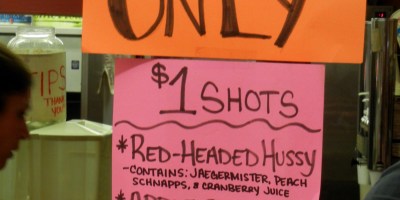 ONLY
TIPS
THANK
YOU
$1 SHOTS
*RED-HEADED HUSSY
-CONTAINS: JAEGERMISTER, PEACH
SCHNAPPS, & CRANBERRY JUICE